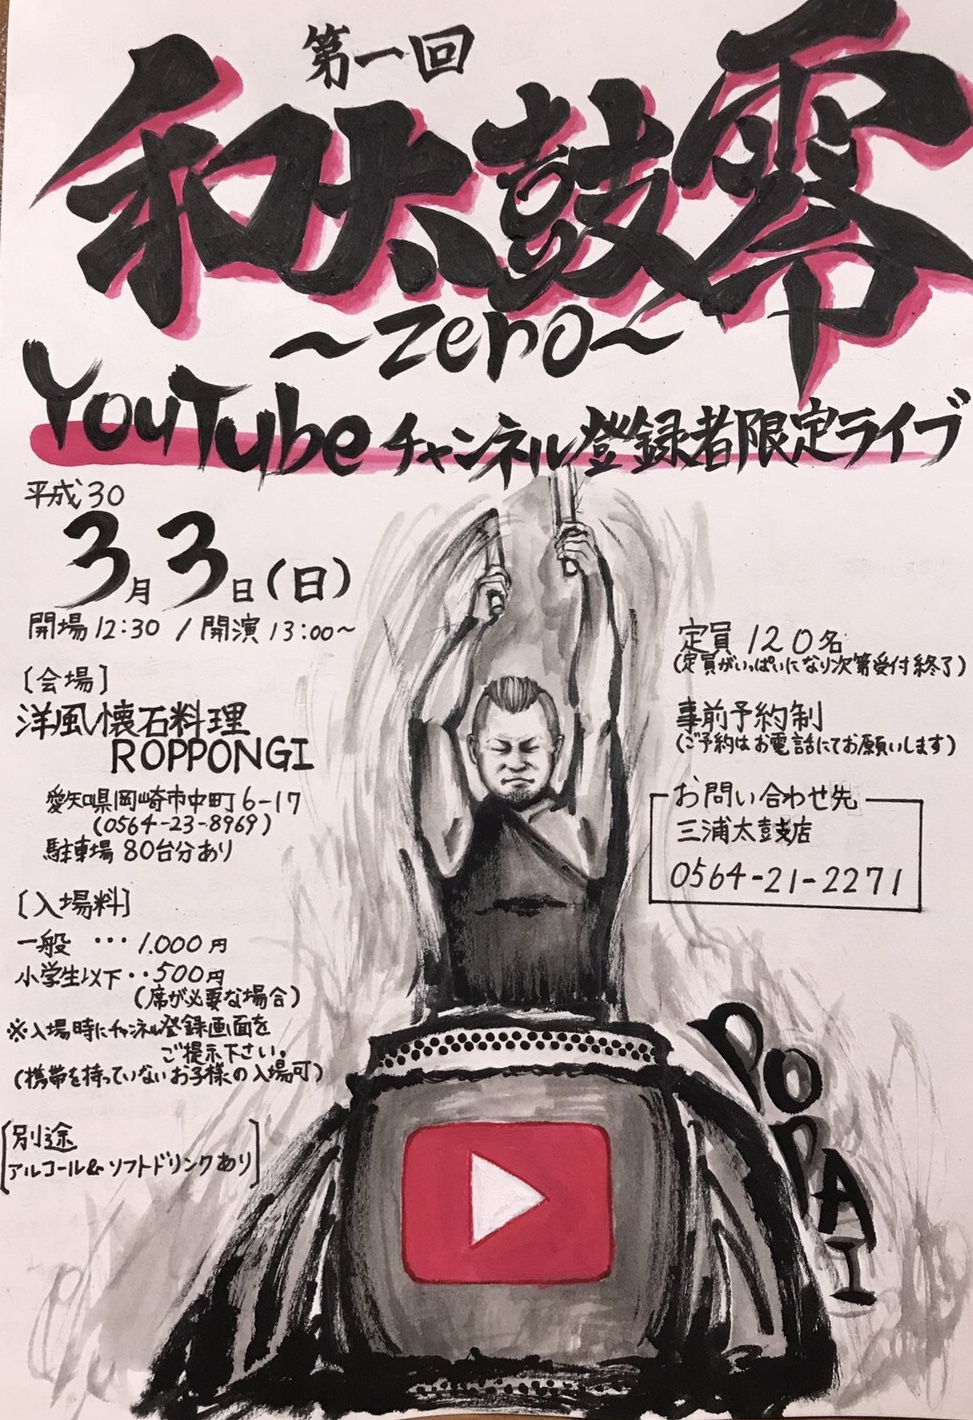 第一回
和太鼓零
～zero～
YouTubeチャンネル登録者限定ライブ
平成30
3月3日(日)
開場12:30 / 開演13:00～
[会場]
洋風懐石料理
ROPPONGI
愛知県岡崎市中町6-17
(0564-23-8969)
駐車場80台分あり
[入場料]
一般 ･･･ 1.000円
小学生以下･･500円
(席が必要な場合)
※入場時にチャンネル登録画面を
ご提示下さい。
(携帯を持っていないお子様の入場可)
[別途
アルコール&ソフトドリンクあり]
定員120名
(定員がいっぱいになり次第受付終了)
事前予約制
(ご予約はお電話にてお願いします)
お問い合わせ先
三浦太鼓店
0564-21-2271
POPAI